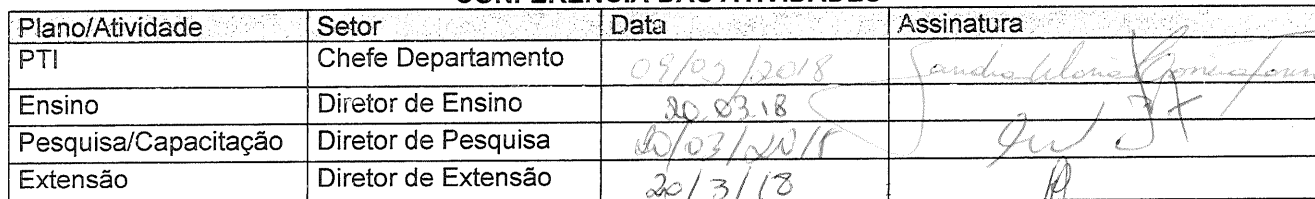 CONFERÊNCIA DAS ATIVIDADES
Plano/Atividade Setor Data Assinatura
PTI Chefe Departamento 09/03/2018 Sandra Maria
Ensino Diretor de Ensino 20.03.18
Pesquisa/Capacitação Diretor de Pesquisa 20/03/2018
Extensão Diretor de Extensão 20/3/18